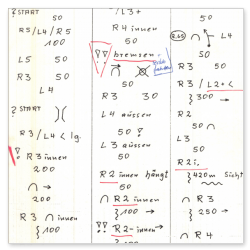 ? START
50
R5 / L4 / R5
100
L5 50
R3 50
L4
? START )(
R3 / L4 < lg.
! R3 innen
200
∩ →
200
R3 ∩ innen
} 100
/ L3+
R4 innen
50
!! bremsen.
∩
R3 30
L4 aüssen
50 ?
L3 aüssen
50
R2 innen hängt
50
∩ R2 innen
} 100 →
!! R2- innen
50
R65 ∩ L4
50
R3 50
R3 / L2+ <
} 300 →
R2
50 ∩
L3
50
R2 ;.
} 420m Sicht
∩ R3
} 250 →
∩ R4